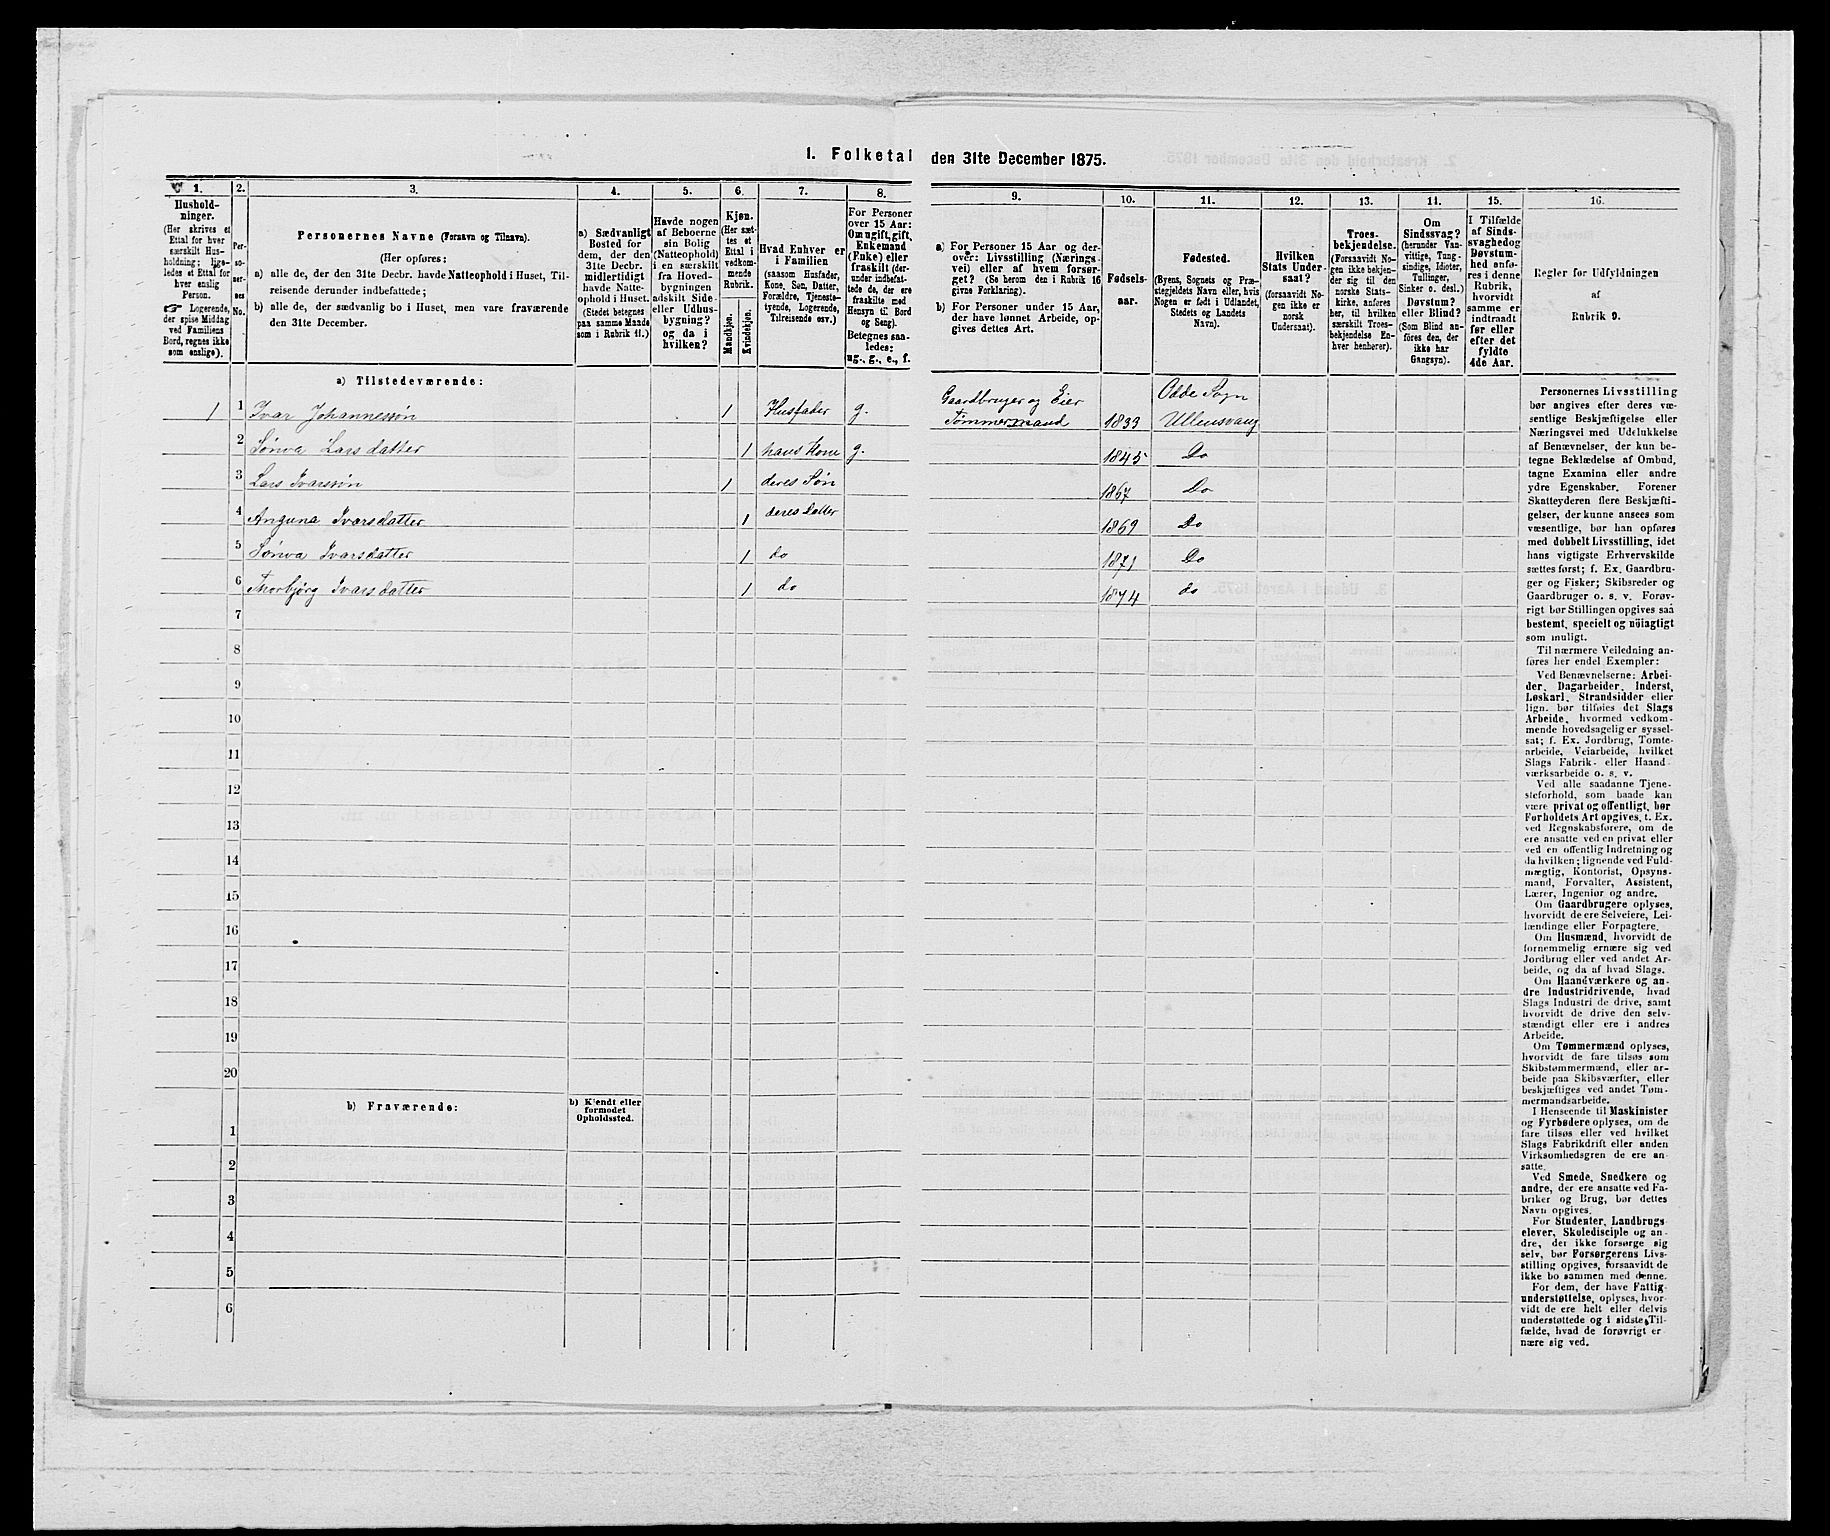 1. Folketal den 31te December 1875.
1.
Hushold-
ninger.
(Her skrives et
Ettal for hver
særskilt Hus-
holdning; lige-
ledes et Ettal for
hver enslig
Person.
☞ Logerende,
der spise Middag
ved Familiens
Bord, regnes ikke
som enslige).
2.
Per-
so-
ner-
nes
No.
3.
Personernes Navne (Fornavn og Tilnavn).
(Her opføres:
a) alle de, der den 31te Decbr. havde Natteophold i Huset, Til-
reisende derunder indbefattede;
b) alle de, der sædvanlig bo i Huset, men vare fraværende
den 31te December.
4.
a) Sædvanligt
Bosted for
dem, der den
31te Decbr.
midlertidigt
havde Natte-
ophold i Huset.
(Stedet betegnes
paa samme Maade
som i Rubrik 11.)
5.
Havde nogen
af Beboerne
sin Bolig
(Natteophold)
i en særskilt
fra Hoved-
bygningen
adskilt Side-
eller Udhus-
bygning?
og da i
hvilken?
6.
Kjøn.
(Her sæt-
tes et
Ettal i
vedkom-
mende
Rubrik.
Mandkjøn.
Kvindekjøn.
7.
Hvad Enhver er
i Familien
(saasom Husfader,
Kone, Søn, Datter,
Forældre, Tjeneste-
tyende, Logerende,
Tilreisende osv.)
8.
For Personer
over 15 Aar:
Om ugift, gift,
Enkemand
(Enke) eller
fraskilt (der-
under indbefat-
tede de, der ere
fraskilte med
Hensyn til Bord
og Seng).
Betegnes saa-
ledes:
ug., g., e., f.
9.
a) For Personer 15 Aar og der-
over: Livsstilling (Nærings-
vei) eller af hvem forsør-
get? (Se herom den i Rubrik 16
givne Forklaring).
b) For Personer under 15 Aar,
der have lønnet Arbeide, op-
gives dettes Art.
10.
Fødsels-
aar.
11.
Fødested.
(Byens, Sognets og Præ-
stegjeldets Navn eller, hvis
Nogen er født i Udlandet,
Stedets og Landets
Navn).
12.
Hvilken
Stats Under-
saat?
(forsaavidt No-
gen ikke er
norsk
Undersaat).
13.
Troes-
bekjendelse.
(Forsaavidt No-
gen ikke bekjen-
der sig til den
norske Stats-
kirke, anføres
her, til hvilken
særskilt Troes-
bekjendelse En-
hver henhører).
14.
Om
Sindssvag?
(herunder Van-
vittige, Tung-
sindige, Idioter,
Tullinger,
Sinker o. desl.)
Døvstum?
eller Blind?
(Som Blind an-
føres den, der
ikke har
Gangsyn).
15.
I Tilfælde
af Sinds-
svaghed og
Døvstum-
hed anfø-
res i denne
Rubrik,
hvorvidt
samme er
indtraadt
før eller
efter det
fyldte
4de Aar.
16.
Regler for Udfyldningen
af
Rubrik 9.
a) Tilstedeværende:
1 1 Ivar Johannessøn 1 Husfader g. Gaardbruger og Eier Tømmermand 1833 Odde Sogn Ullensvang
2 Sønva Larsdatter 1 hans Kone g. 1845 Do
3 Lars Ivarssøn 1 deres Søn 1867 Do
4 Anguna Ivarsdatter 1 deres Datter 1869 Do
5 Sønva Ivarsdatter 1 do 1871 Do
6 Thorbjørg Ivarsdatter 1 do 1874 do
7
8
9
10
11
12
13
14
15
16
17
18
19
20
b) Fraværende:
b) Kjendt eller
formodet
Opholdssted.
1
2
3
4
5
6
Personernes Livsstilling
bør angives efter deres væ-
sentlige Beskjæftigelse eller
Næringsvei med Udelukkelse
af Benævnelser, der kun be-
tegne Beklædelse af Ombud,
tagne Examina eller andre
ydre Egenskaber. Forener
Skatteyderen flere Beskjæfti-
gelser, der kunne ansees som
væsentlige, bør han opføres
med dobbelt Livsstilling, idet
hans vigtigste Erhvervskilde
sættes først; f. Ex. Gaardbru-
ger og Fisker; Skibsreder og
Gaardbruger o. s. v. Forøv-
rigt bør Stillingen opgives saa
bestemt, specielt og nöiagtigt
som muligt.
Til nærmere Veiledning an-
føres her endel Exempler:
Ved Benævnelserne: Arbei-
der, Dagarbeider, Inderst,
Løskarl, Strandsidder eller
lign. bør tilføies det Slags
Arbeide, hvormed vedkom-
mende hovedsagelig er syssel-
sat; f. Ex. Jordbrug, Tomte-
arbeide, Veiarbeide, hvilket
Slags Fabrik- eller Haand-
værksarbeide o. s. v.
Ved alle saadanne Tjene-
steforhold, som baade kan
være privat og offentligt, bør
Forholdets Art opgives, t. Ex.
ved Regnskabsførere, om de
ere ansatte ved en privat eller
ved en offentlig Indretning og
da hvilken; lignende ved Fuld-
mægtig, Kontorist, Opsyns-
mand, Forvalter, Assistent,
Lærer, Ingeniør og andre.
Om Gaardbrugere oplyses,
hvorvidt de ere Selveiere, Lei-
lændinge eller Forpagtere.
Om Husmænd, hvorvidt de
fornemmelig ernære sig ved
Jordbrug eller ved andet Ar-
beide, og da af hvad Slags.
Om Haandværkere og an-
dre Industridrivende, hvad
Slags Industri de drive, samt
hvorvidt de drive den selv-
stændigt eller ere i andres
Arbeide.
Om Tømmermænd oplyses,
hvorvidt de fare tilsøs som
Skibstømmermænd, eller ar-
beide paa Skibsværfter, eller
beskjæftiges ved andet Tøm-
mermandsarbeide.
I Henseende til Maskinister
og Fyrbødere oplyses, om de
fare tilsøs eller ved hvilket
Slags Fabrikdrift eller anden
Virksomhedsgren de ere an-
satte.
Ved Smede, Snedkere og
andre, der ere ansatte ved Fa-
briker og Brug, bør dettes
Navn opgives.
For Studenter, Landbrugs-
elever, Skoledisciple og an-
dre, der ikke forsørge sig
selv, bør Forsørgerens Livs-
stilling opgives, forsaavidt de
ikke bo sammen med denne.
For dem, der have Fattig-
understøttelse, oplyses, hvor-
vidt de ere helt eller delvis
understøttede og i sidste Til-
fælde, hvad de forøvrigt er-
nære sig ved.